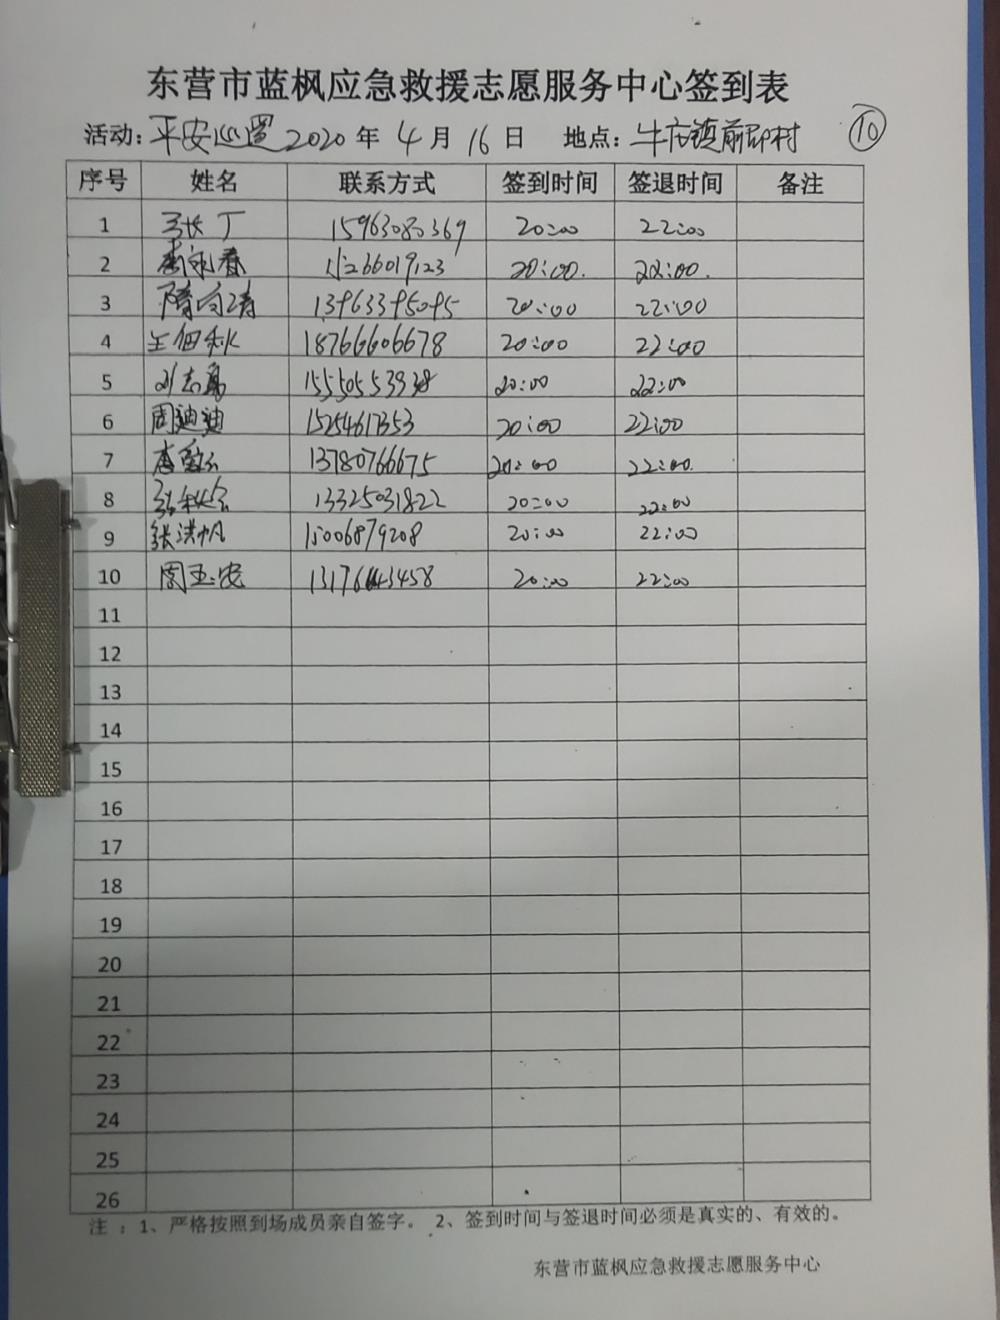 东营市蓝枫应急救援志愿服务中心签到表
活动：平安巡逻 2020 年 4 月 16 日 地点：牛庄镇前邵村 ⑩
序号 姓名 联系方式 签到时间 签退时间 备注
1 丁 15963080369 20:00 22:00
2 春 20:00. 22:00.
3 隋向涛 13963395095 20:00 22:00
4 王佃秋 18766606678 20:00 22:00
5 刘志 20:00 22:00
6 周迪迪 15254617353 20:00 22:00
7 13780766675 20:00 22:00.
8 13325031822 20:00 22:00
9 张洪帆 15006879208 20:00 22:00
10 周玉 20:00 22:00
11
12
13
14
15
16
17
18
19
20
21
22
23
24
25
26
注 ：1、严格按照到场成员亲自签字。 2、签到时间与签退时间必须是真实的、有效的。
东营市蓝枫应急救援志愿服务中心